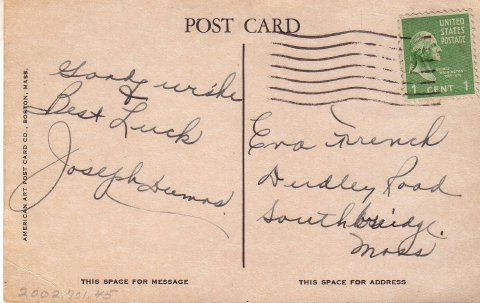 POST CARD
UNITED
STATES
POSTAGE
1 CENT 1
Good wishe
&
Best Luck
Joseph Dumas.
Eva French
Dudley Road
Southbridge.
Mass
AMERICAN ART POST CARD CO., BOSTON, MASS.
THIS SPACE FOR MESSAGE
THIS SPACE FOR ADDRESS
2002.701.45